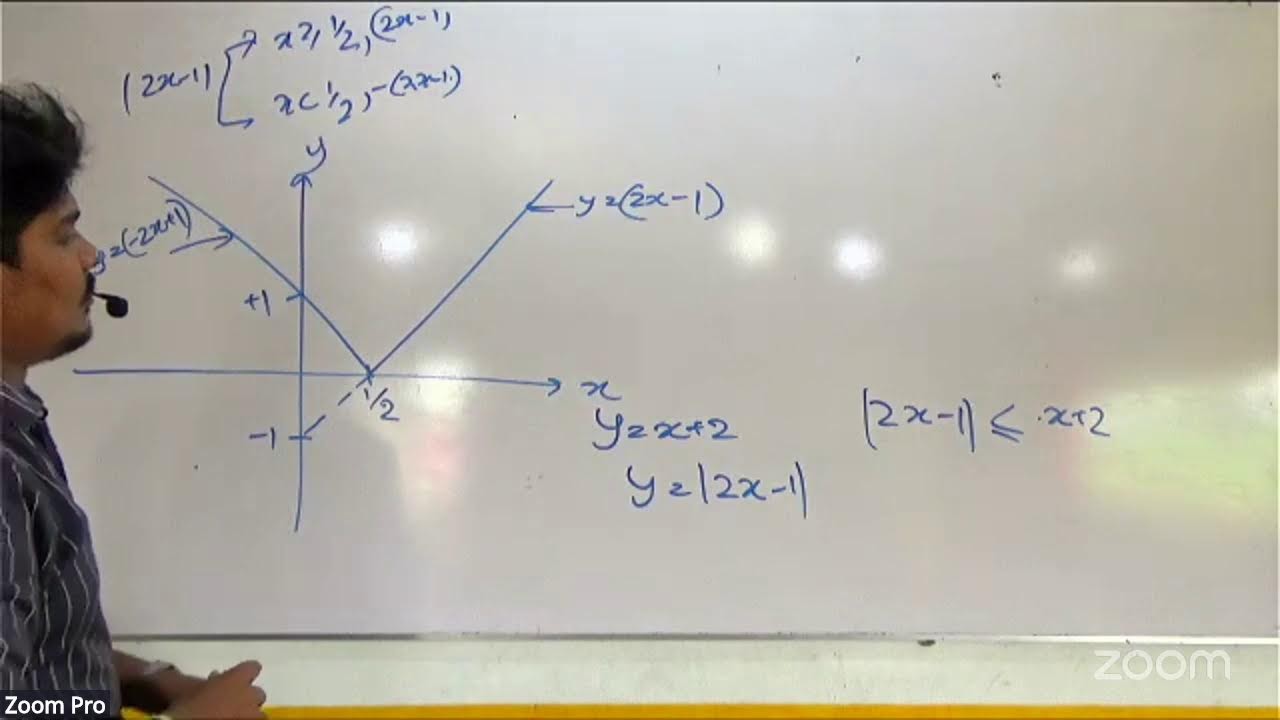 |2x-1|
x ≥ 1/2, (2x-1)
x < 1/2, -(2x-1)
y
y = (2x-1)
y = (-2x+1)
+1
1/2
x
-1
y = x+2
|2x-1| ≤ x+2
y = |2x-1|
zoom
Zoom Pro